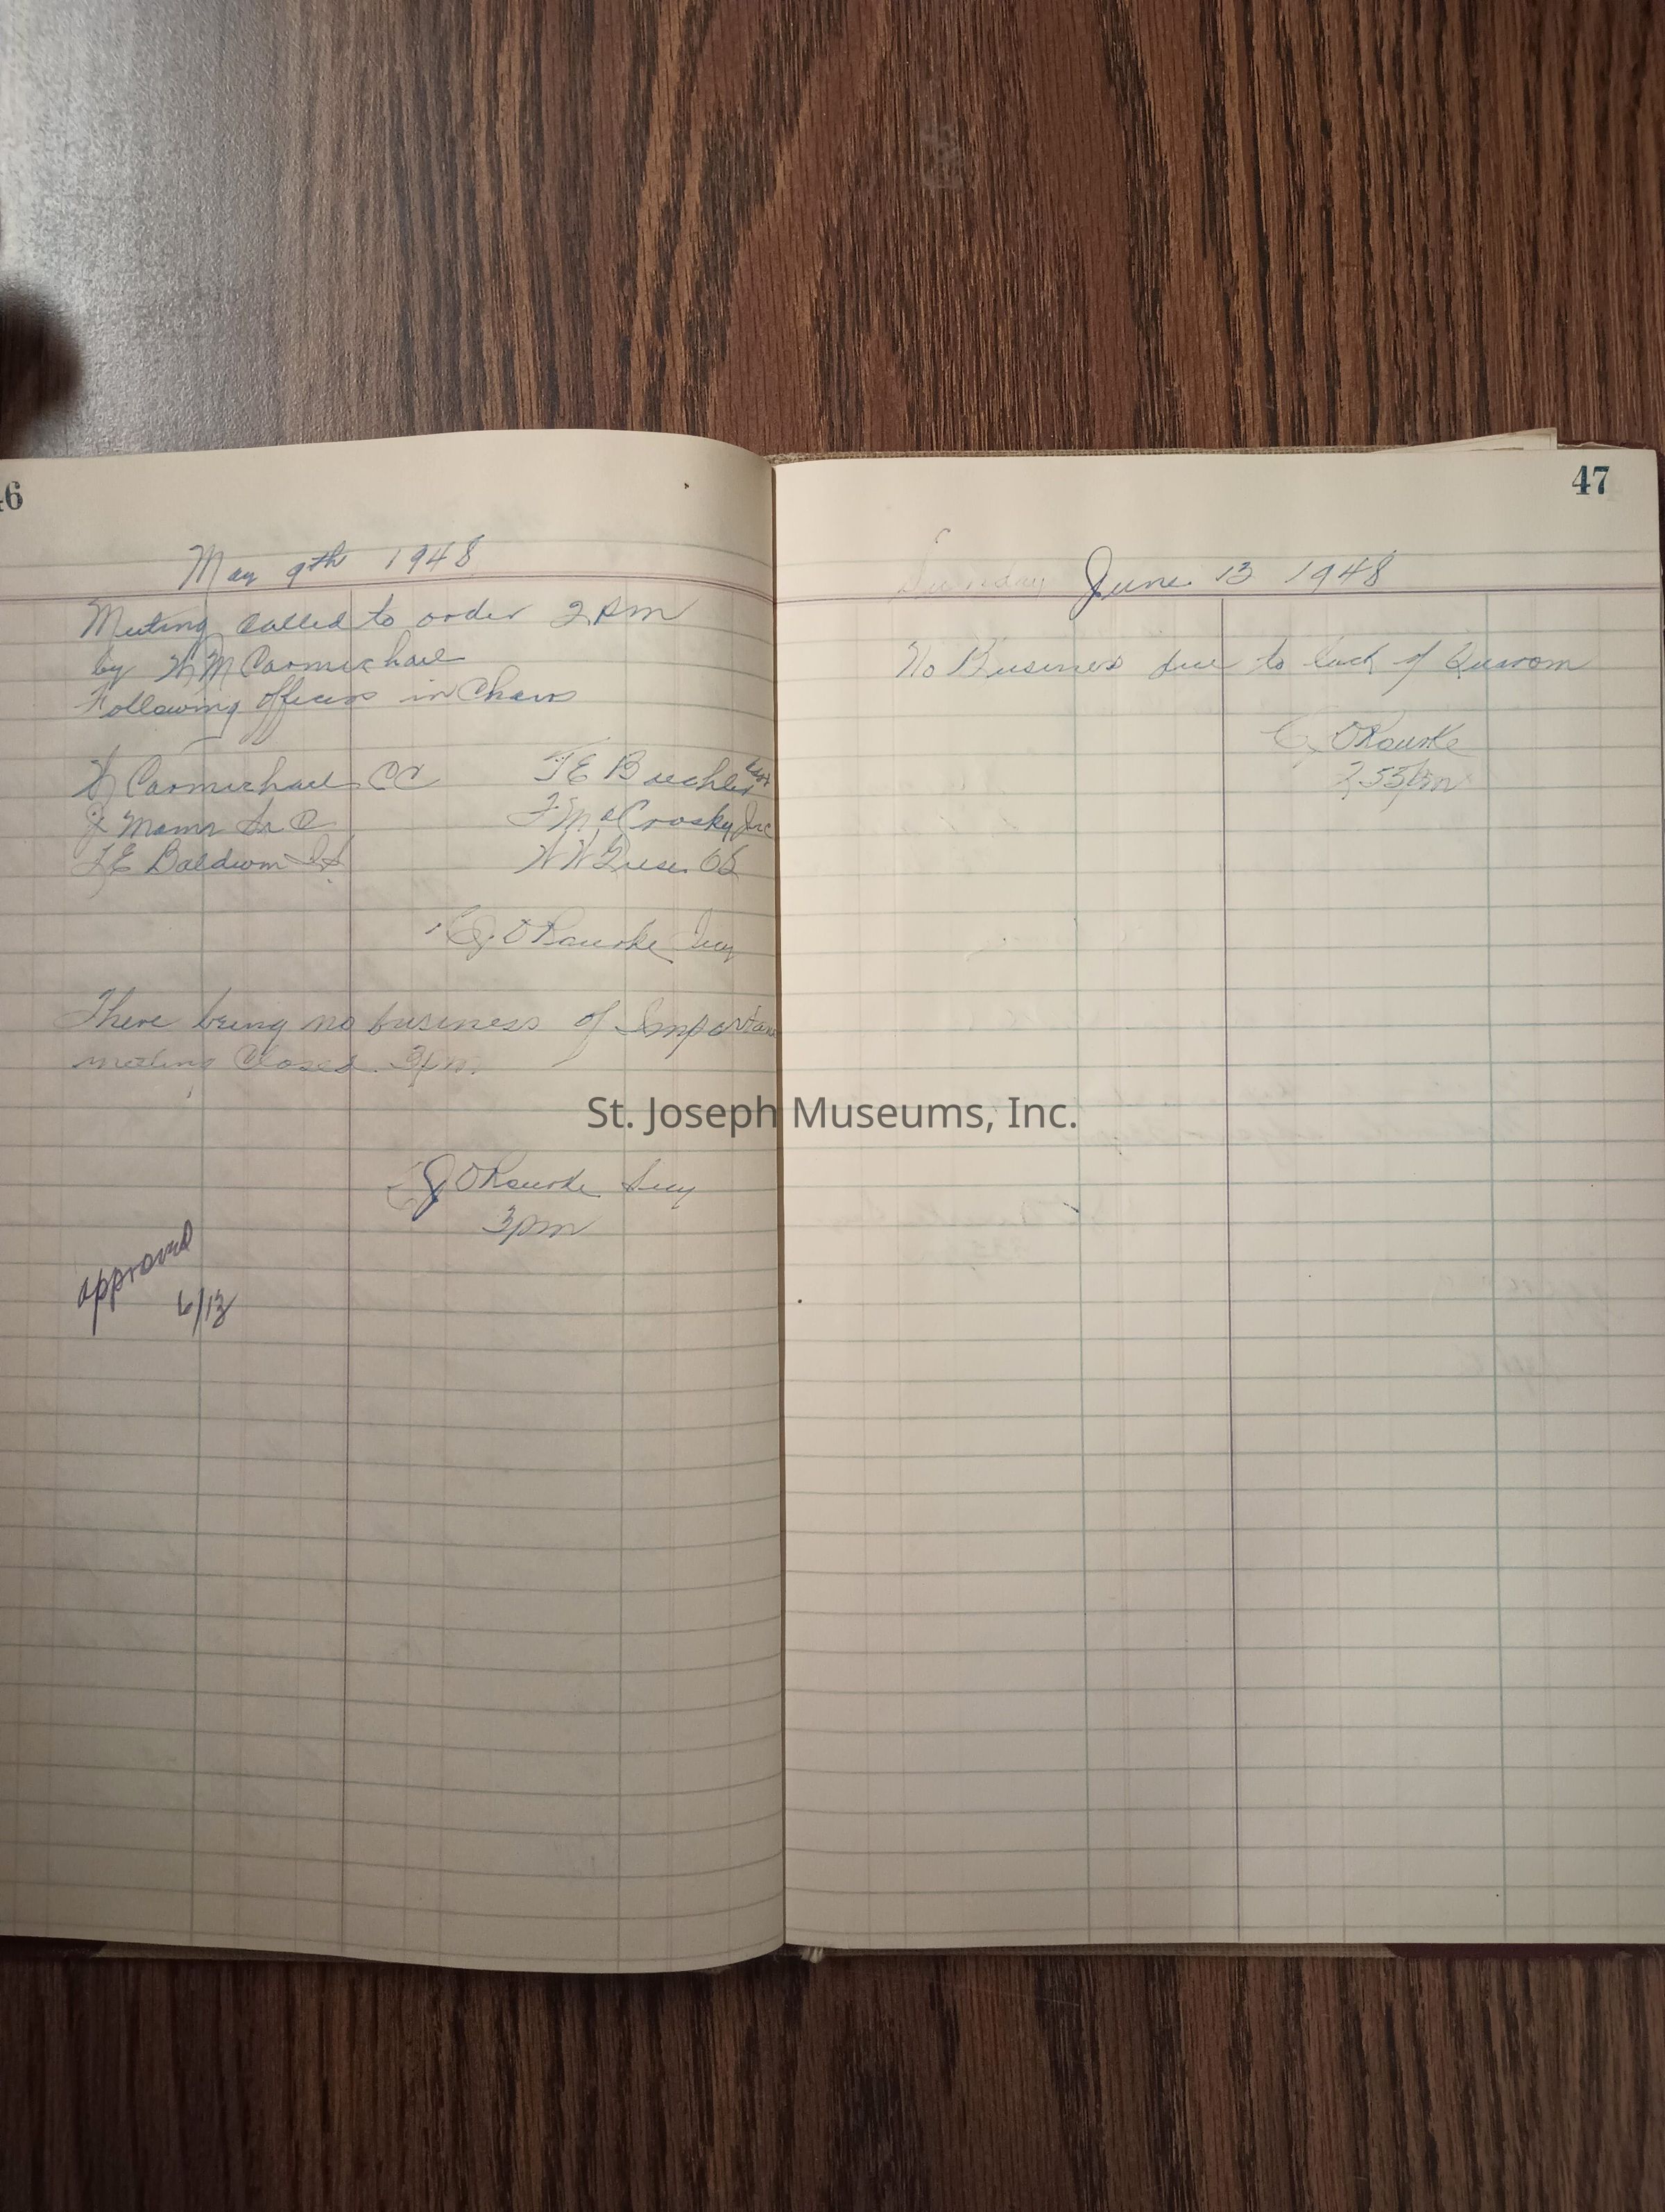 46
May 9th 1948
Meeting called to order 2 Pm
by W M Carmichael
Following officers in Chairs
W Carmichael CC
J E Buehler
J Mann Sr C
F McCrosky Trc
F E Baldwin
W W Giese OS
C J O Rourke Secy
There being no business of Importance
meeting Closed 3 pm.
C J O Rourke Secy
3 pm
approved
6/13
47
Sunday June 13 1948
No Business due to lack of Quorom
C J O Rourke
2 55 Pm
St. Joseph Museums, Inc.